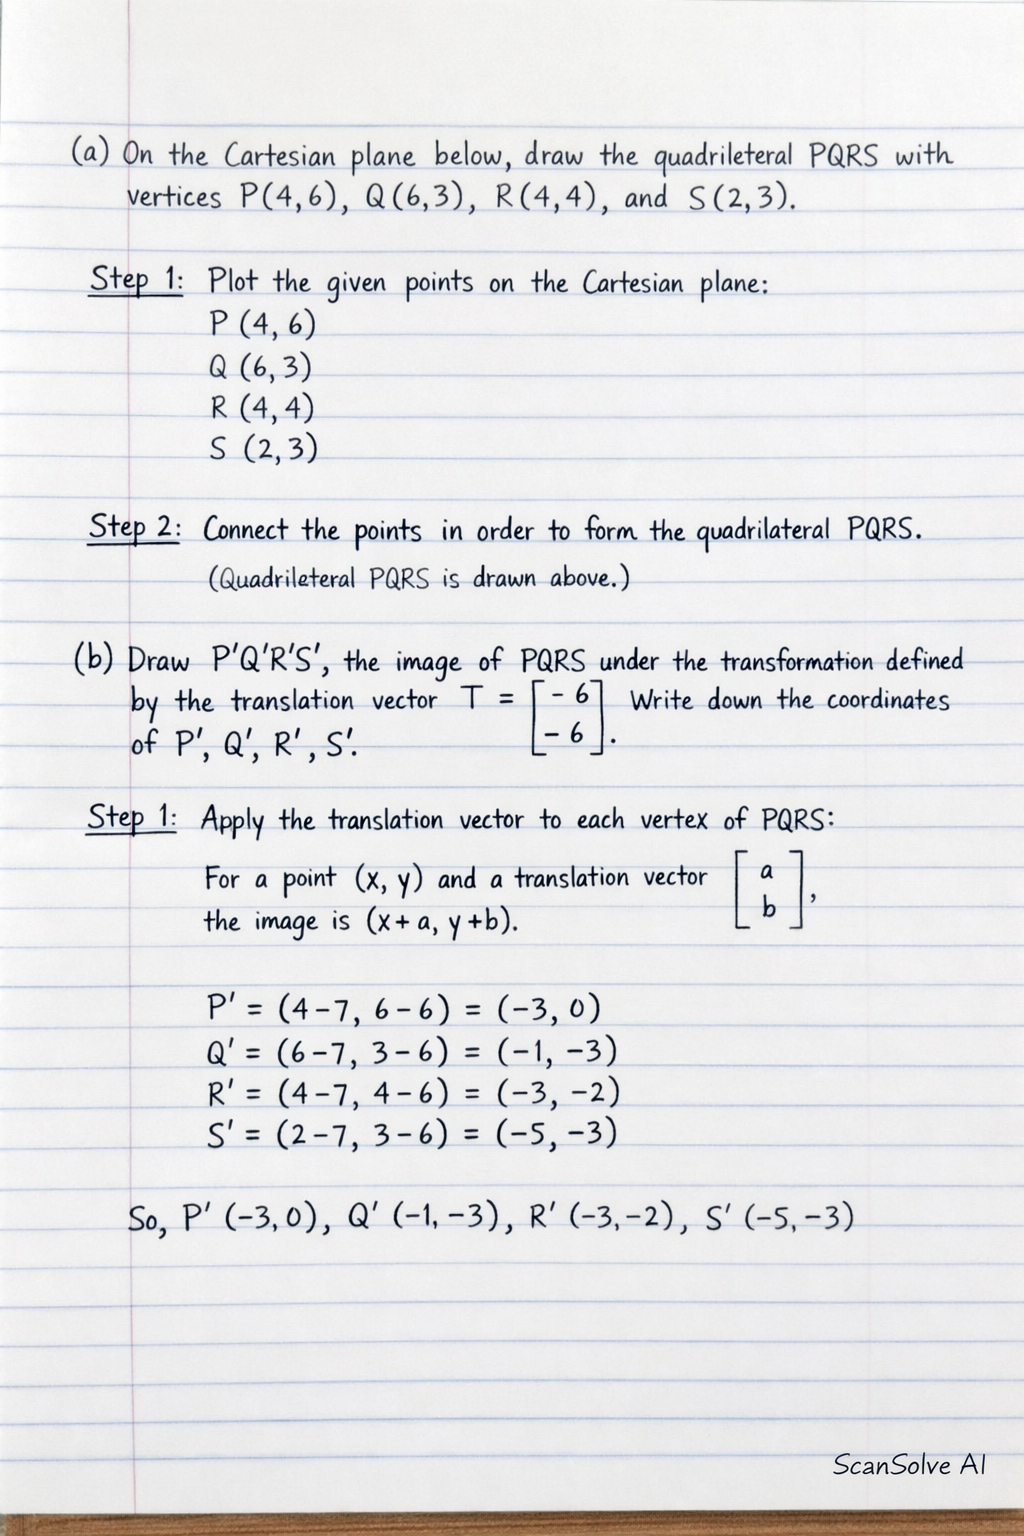 (a) On the Cartesian plane below, draw the quadrileteral PQRS with
vertices P(4,6), Q(6,3), R(4,4), and S(2,3).
Step 1: Plot the given points on the Cartesian plane:
P (4, 6)
Q (6, 3)
R (4, 4)
S (2, 3)
Step 2: Connect the points in order to form the quadrilateral PQRS.
(Quadrileteral PQRS is drawn above.)
(b) Draw P'Q'R'S', the image of PQRS under the transformation defined
by the translation vector T = [-6 -6]. Write down the coordinates
of P', Q', R', S'.
Step 1: Apply the translation vector to each vertex of PQRS:
For a point (x, y) and a translation vector [a b],
the image is (x+a, y+b).
P' = (4-7, 6-6) = (-3, 0)
Q' = (6-7, 3-6) = (-1, -3)
R' = (4-7, 4-6) = (-3, -2)
S' = (2-7, 3-6) = (-5, -3)
So, P' (-3,0), Q' (-1,-3), R' (-3,-2), S' (-5,-3)
ScanSolve AI